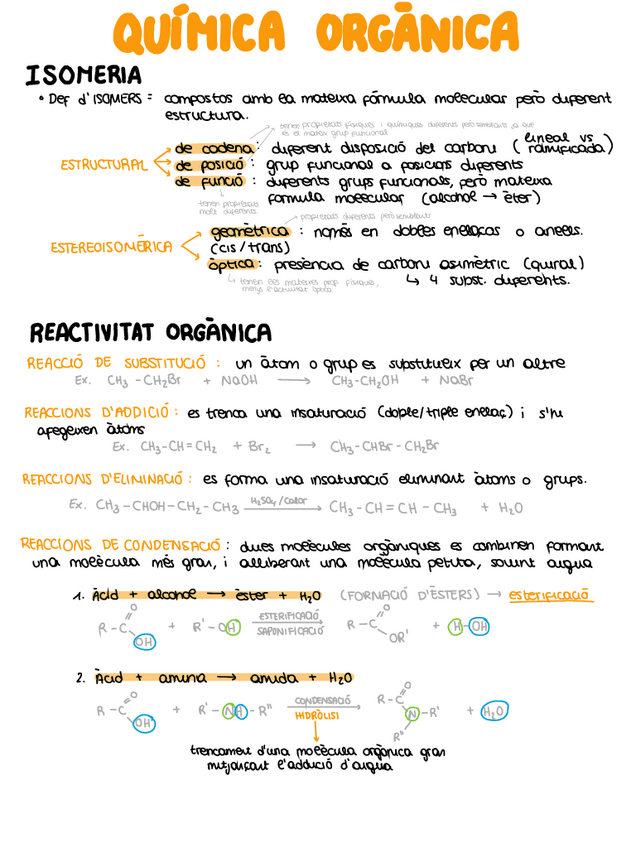 QUÍMICA ORGÀNICA
ISOMERIA
• Def d'ISOMERS = compostos amb la mateixa fórmula molecular però diferent
estructura.
tenen propietats físiques i químiques diferents però semblants ja que
és el mateix grup funcional
ESTRUCTURAL
de cadena: diferent disposició del carboni (lineal vs ramificada)
de posició: grup funcional a posicions diferents
de funció: diferents grups funcionals, però mateixa
fórmula molecular (alcohol → èter)
tenen propietats
molt diferents
propietats diferents però semblants
ESTEREOISOMÈRICA
geomètrica: només en dobles enllaços o anells.
(cis/trans)
òptica: presència de carboni asimètric (quiral)
↳ 4 subst. diferents.
↳ tenen les mateixes prop. físiques,
menys l'activitat òptica
REACTIVITAT ORGÀNICA
REACCIÓ DE SUBSTITUCIÓ: un àtom o grup es substitueix per un altre
Ex. CH₃ - CH₂Br + NaOH → CH₃-CH₂OH + NaBr
REACCIONS D'ADDICIÓ: es trenca una insaturació (doble/triple enllaç) i s'hi
afegeixen àtoms
Ex. CH₃-CH=CH₂ + Br₂ → CH₃-CHBr-CH₂Br
REACCIONS D'ELIMINACIÓ: es forma una insaturació eliminant àtoms o grups.
Ex. CH₃-CHOH-CH₂-CH₃ H₂SO₄/calor → CH₃-CH=CH-CH₃ + H₂O
REACCIONS DE CONDENSACIÓ: dues molècules orgàniques es combinen formant
una molècula més gran, i alliberant una molècula petita, sovint aigua
1. Àcid + alcohol → èster + H₂O (FORMACIÓ D'ÈSTERS) → esterificació
R-C O OH + R'-OH ESTERIFICACIÓ SAPONIFICACIÓ R-C O OR' + H-OH
2. Àcid + amina → amida + H₂O
R-C O OH + R'-NH-R" CONDENSACIÓ HIDRÒLISI R-C O N-R' R" + H₂O
trencament d'una molècula orgànica gran
mitjançant l'addició d'aigua